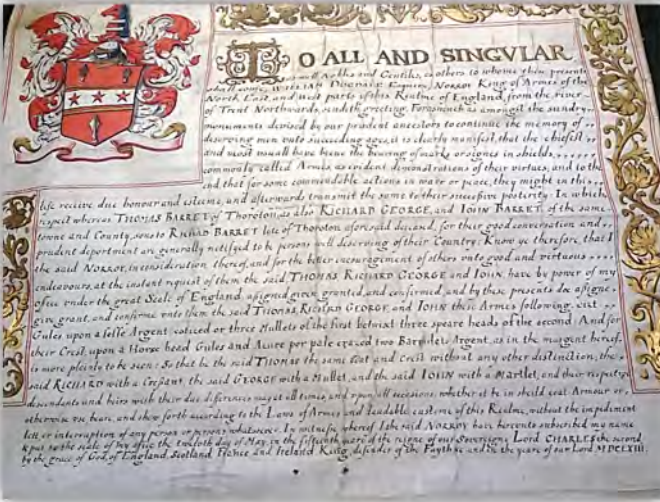 TO ALL AND SINGVLAR
as well Nobles and Gentils, as others to whome these presents
shall come, WILLIAM DUGDALE Esquire, NORROY King of Armes of the
North, East, and West parts of this Realme of England, from the river
of Trent Northwards, sendeth greeting. Forasmuch as amongst the sundry
monuments devised by our prudent ancestors to continue the memory of
deserving men unto succeeding ages, it is clearly manifest, that the chiefest
and most usuall have beene the bearing of markes or signes in shields,
commonly called Armes, as evident demonstrations of their virtues, and to the
end that for some commendable actions in warre or peace, they might in this
life receive due honour and esteeme, and afterwards transmit the same to their successive posterity. In which
respect whereas THOMAS BARRET of Thoroton, as also RICHARD GEORGE, and IOHN BARRET, of the same
towne and County, sons to RICHARD BARRET late of Thoroton aforesaid deceased, for their good conversation and
prudent deportment are generally notifyed to be persons well deserving of their Country: Know ye therefore, that I
the said NORROY, in consideration thereof, and for the better incouragement of others unto good and virtuous
endeavours, at the instant request of them the said THOMAS RICHARD GEORGE and IOHN, have by power of my
office under the great Seale of England, assigned, given, granted, and confirmed, and by these presents doe assigne
give, grant, and confirme unto them the said THOMAS RICHARD GEORGE, and IOHN these Armes following, vizt
Gules upon a fesse Argent coticed or three Mullets of the first betwixt three speare heads of the second. And for
their Crest, upon a Horse head Gules and Azure per pale erazed two Barrulets Argent, as in the margent hereof,
is more plainly to be seen: So that he the said THOMAS the same Coat and Crest without any other distinction, the
said RICHARD with a Cressant, the said GEORGE with a Mullet, and the said IOHN with a Martlet, and their respective
descendants and heirs with their due differences may at all times, and upon all occasions, whether it be in sheild coat-Armour or
otherwise use beare, and shew forth according to the Laws of Armes and laudable custome of this Realme, without the impediment
lett, or interruption of any person or persons whatsoever. In witnesse whereof I the said NORROY have hereunto subscribed my name
& put to the seale of my office the twelfth day of May, in the fifteenth yeare of the reigne of our Soveraigne Lord CHARLES the second
by the grace of God, of England, Scotland, France and Ireland King, defender of the Faythe, and in the yeare of our Lord MDCLXIII.